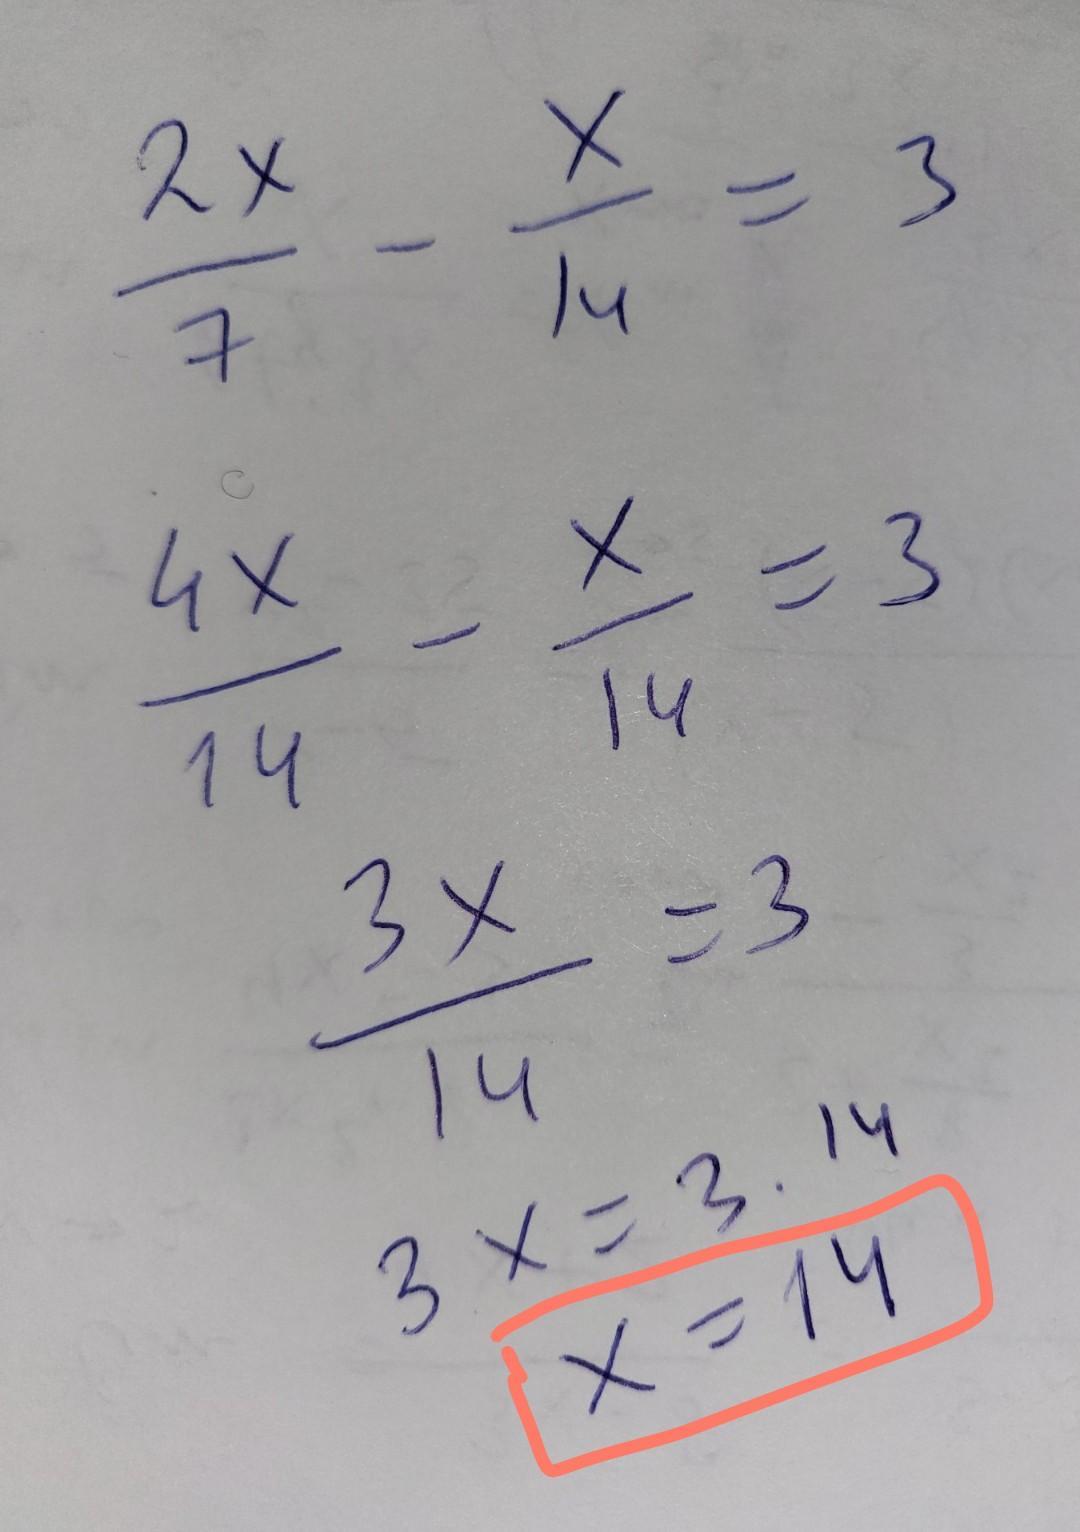 2x/7 - x/14 = 3
4x/14 - x/14 = 3
3x/14 = 3
3x = 3.14
x = 14